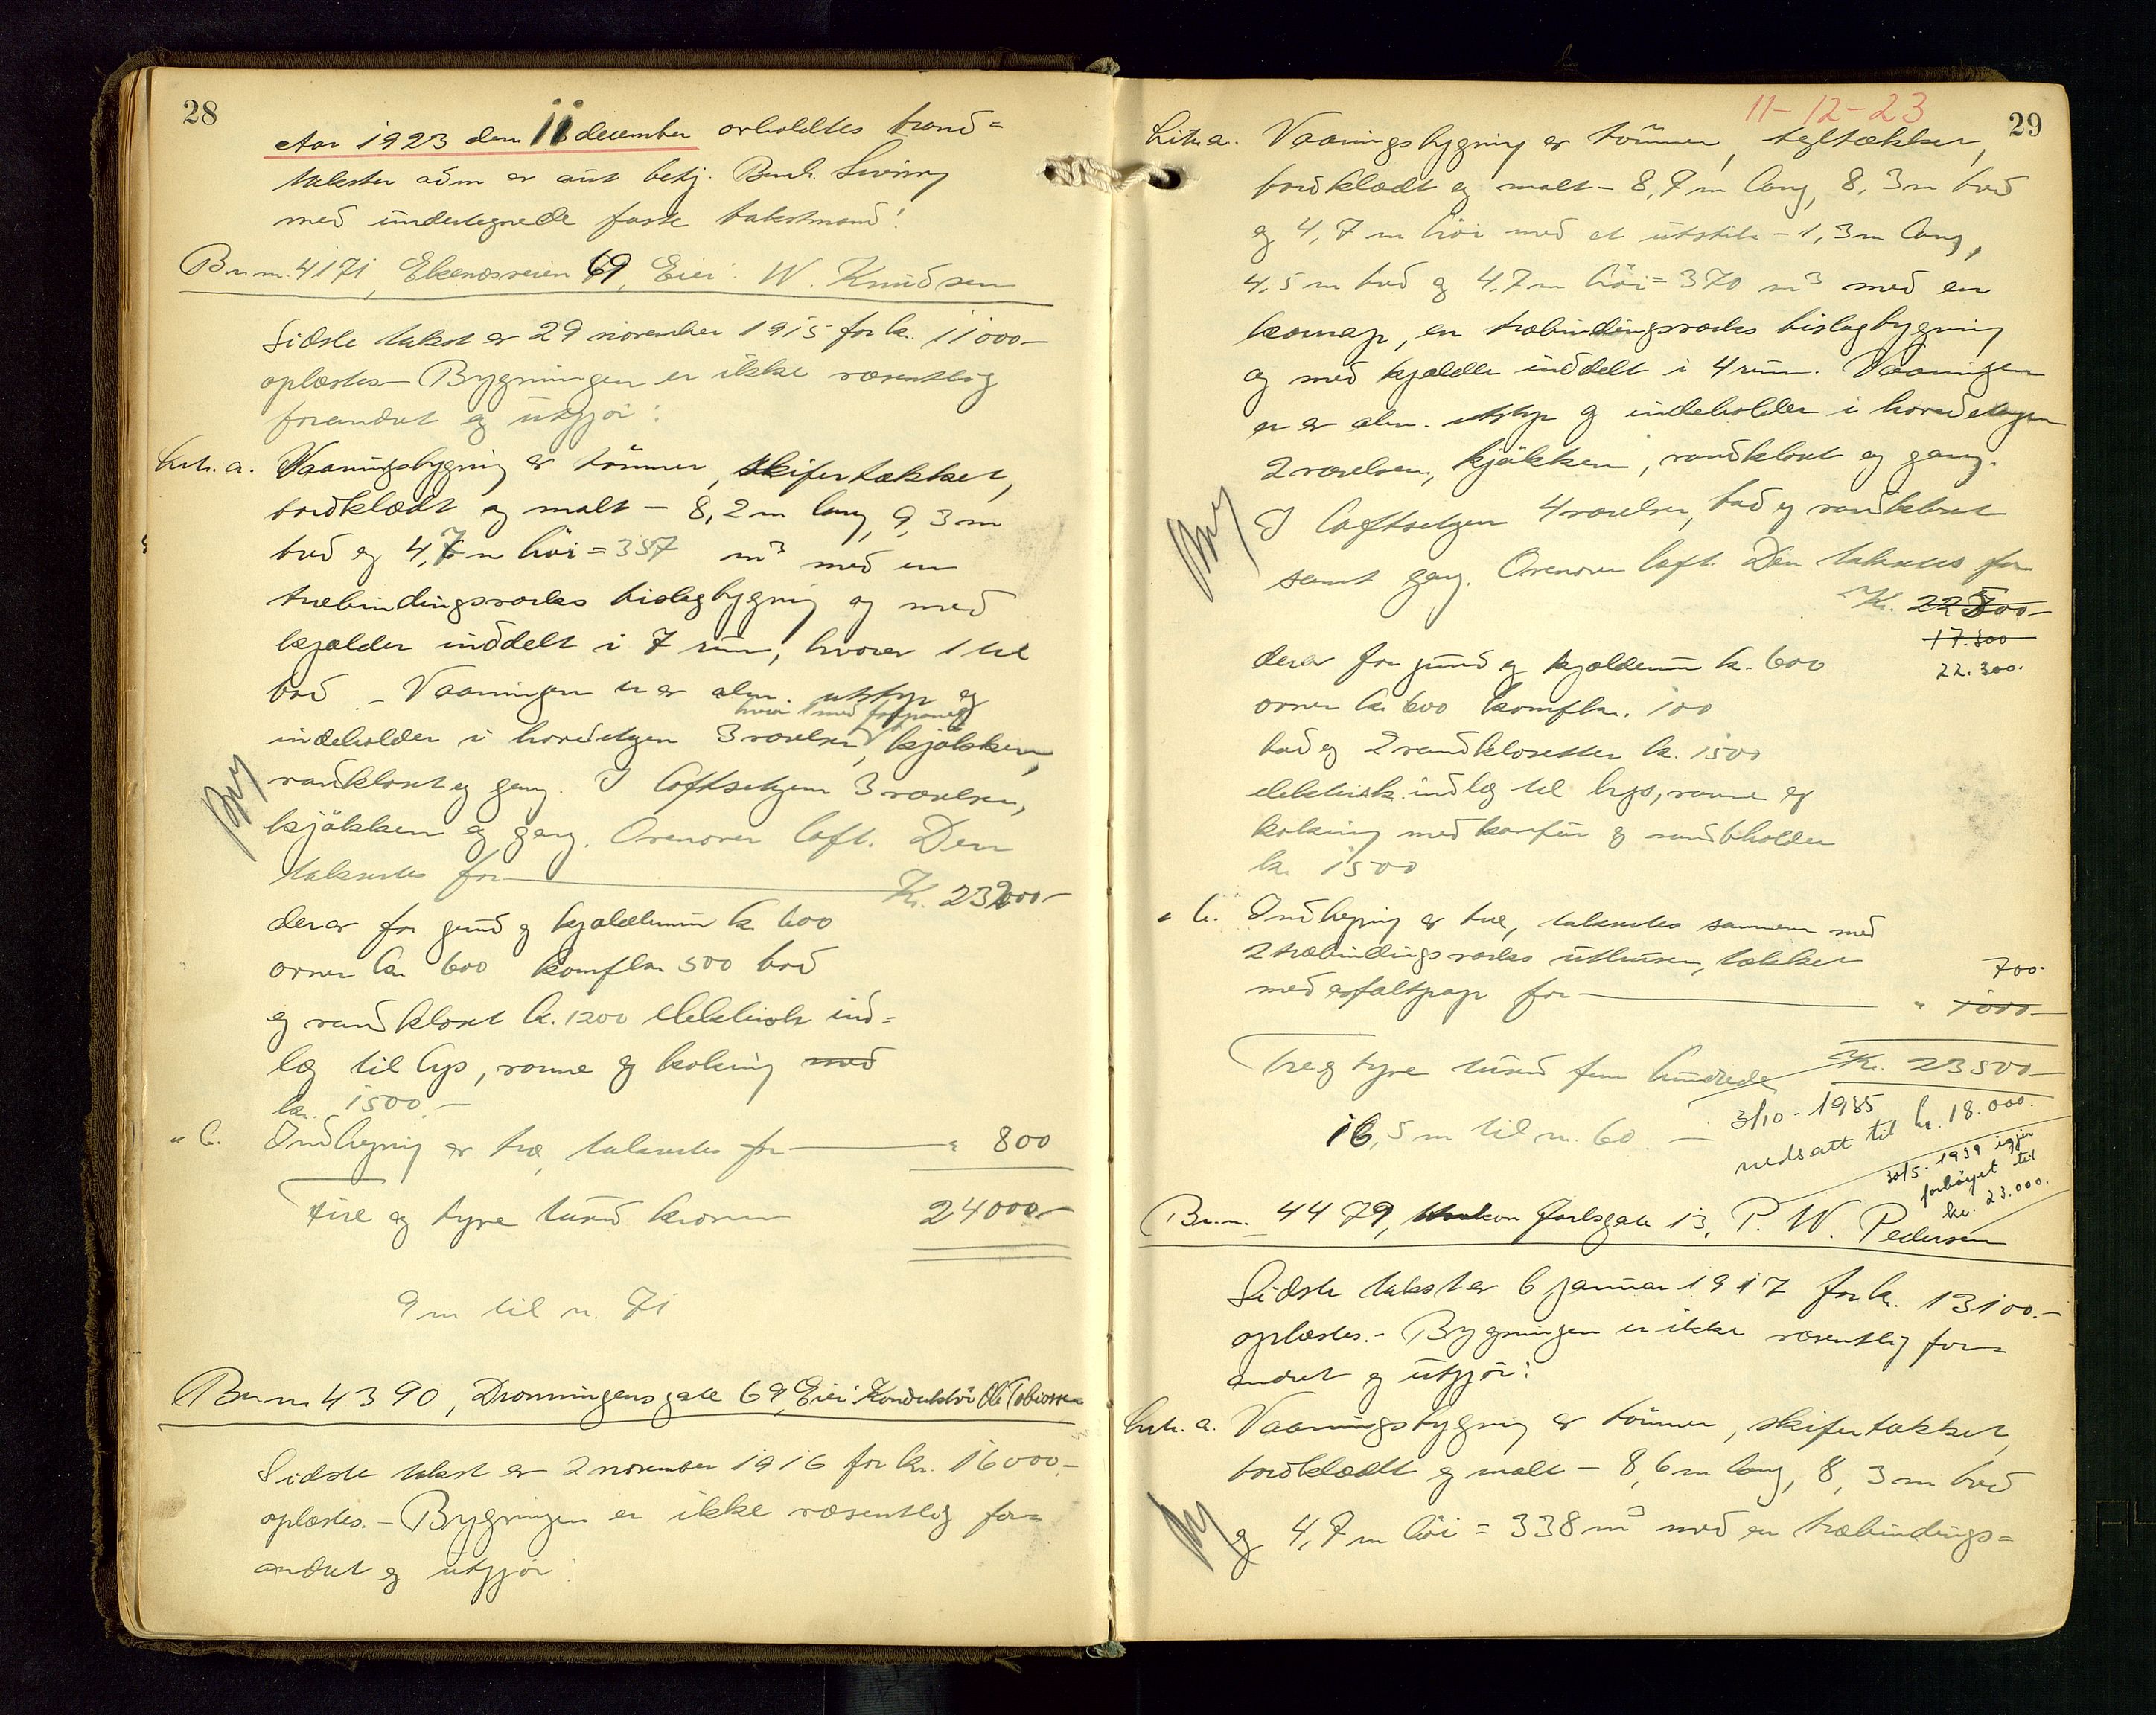 28
Aar 1923 den 11 december avholdtes brand=
takster
med undertegnede faste takstmænd:
Br.nr. 4171, Ekenæsveien 69, Eier: W. Knudsen
Sidste takst er 29 november 1915 for kr. 11000.-
oplæstes - Bygningen er ikke væsentlig
forandret og utgjør:
Litr. a. Vaaningsbygning av tømmer, skifertækket,
bordklædt og malt - 8,2 m lang, 9,3 m
bred og 4,7 m høi = 357 m3 med en
træbindingsverks bislagbygning og med
kjelder inddelt i 7 rum, hvorav 1 til
bad. - Vaaningen er av alm. utstyr og
hvorav 1 med
indeholder i hovedetagen 3 værelser, kjøkken,
vandkloset og gang. I loftsetagen 3 værelser,
kjøkken og gang. Ovenover loft. Den
takseres for Kr. 23200.-
derav for grund og kjeldermur kr. 600
ovner kr. 600 komfyr 500 bad
og vandkloset kr. 1200 elektrisk ind=
læg til lys, varme og kokning med
kr. 1500.-
" b. Indhegning av træ, takseres for " 800
Fire og tyve tusind kroner 24000.-
9 m til n. 71
Br.nr. 4390, Dronningensgate 69, Eier: Konduktør Ole Tobiassen
Sidste takst er 2 november 1916 for kr. 16000.-
oplæstes. - Bygningen er ikke væsentlig for=
andret og utgjør:
11-12-23
29
Litr. a. Vaaningsbygning av tømmer, tegltækket,
bordklædt og malt - 8,7 m lang, 8,3 m bred
og 4,7 m høi med et utstik - 1,3 m lang,
4,5 m bred og 4,7 m høi = 370 m3 med en
karnap, en træbindingsverks bislagbygning
og med kjelder inddelt i 4 rum. Vaaningen
er av alm. utstyr og indeholder i hovedetagen
2 værelser, kjøkken, vandkloset og gang.
I loftsetagen 4 værelser, bad og vandkloset
samt gang. Ovenover loft. Den takseres for
Kr. 22500.-
17.300
22.300.-
derav for grund og kjeldermur kr. 600
ovner kr. 600 komfyr. 100
bad og 2 vandklosetter kr. 1500
elektrisk indlæg til lys, varme og
kokning med komfyr og vandbeholder
kr. 1500
" b. Indhegning av træ, takseres sammen med
2 træbindingsverks uthuser, tækket
700.-
med asfaltpap for " 1000.-
Tre og tyve tusind fem hundrede Kr. 23500.-
16,5 m til n. 60. -
3/10 - 1935
nedsatt til kr. 18.000.
30/5 - 1939 igjen
forhøiet til
kr. 23.000.
Br.nr. 4479, Haakon Jarlsgate 13, P. W. Pedersen
Sidste takst er 6 januar 1917 for kr. 13100.-
oplæstes. - Bygningen er ikke væsentlig for=
andret og utgjør:
Litr. a. Vaaningsbygning av tømmer, skifertækket,
bordklædt og malt - 8,6 m lang, 8,3 m bred
og 4,7 m høi = 338 m3 med en træbindings=